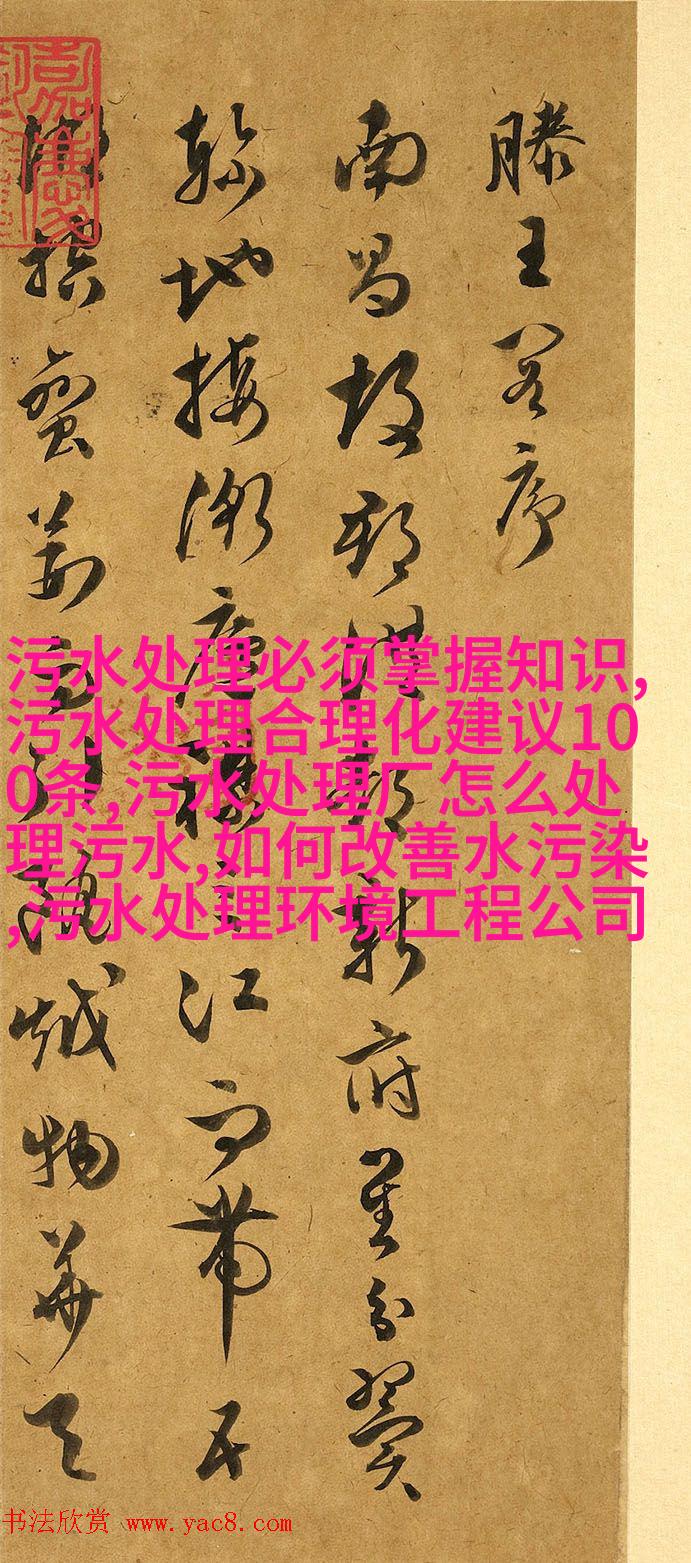 滕王閣序
南昌故郡洪都新府星分翼
軫地接衡廬襟三江而帶五
湖控蠻荊而引甌越物華天
污水处理必须掌握知识,
污水处理合理化建议10
0条,污水处理厂怎么处
理污水,如何改善水污染
,污水处理环境工程公司
书法欣赏 www.yac8.com